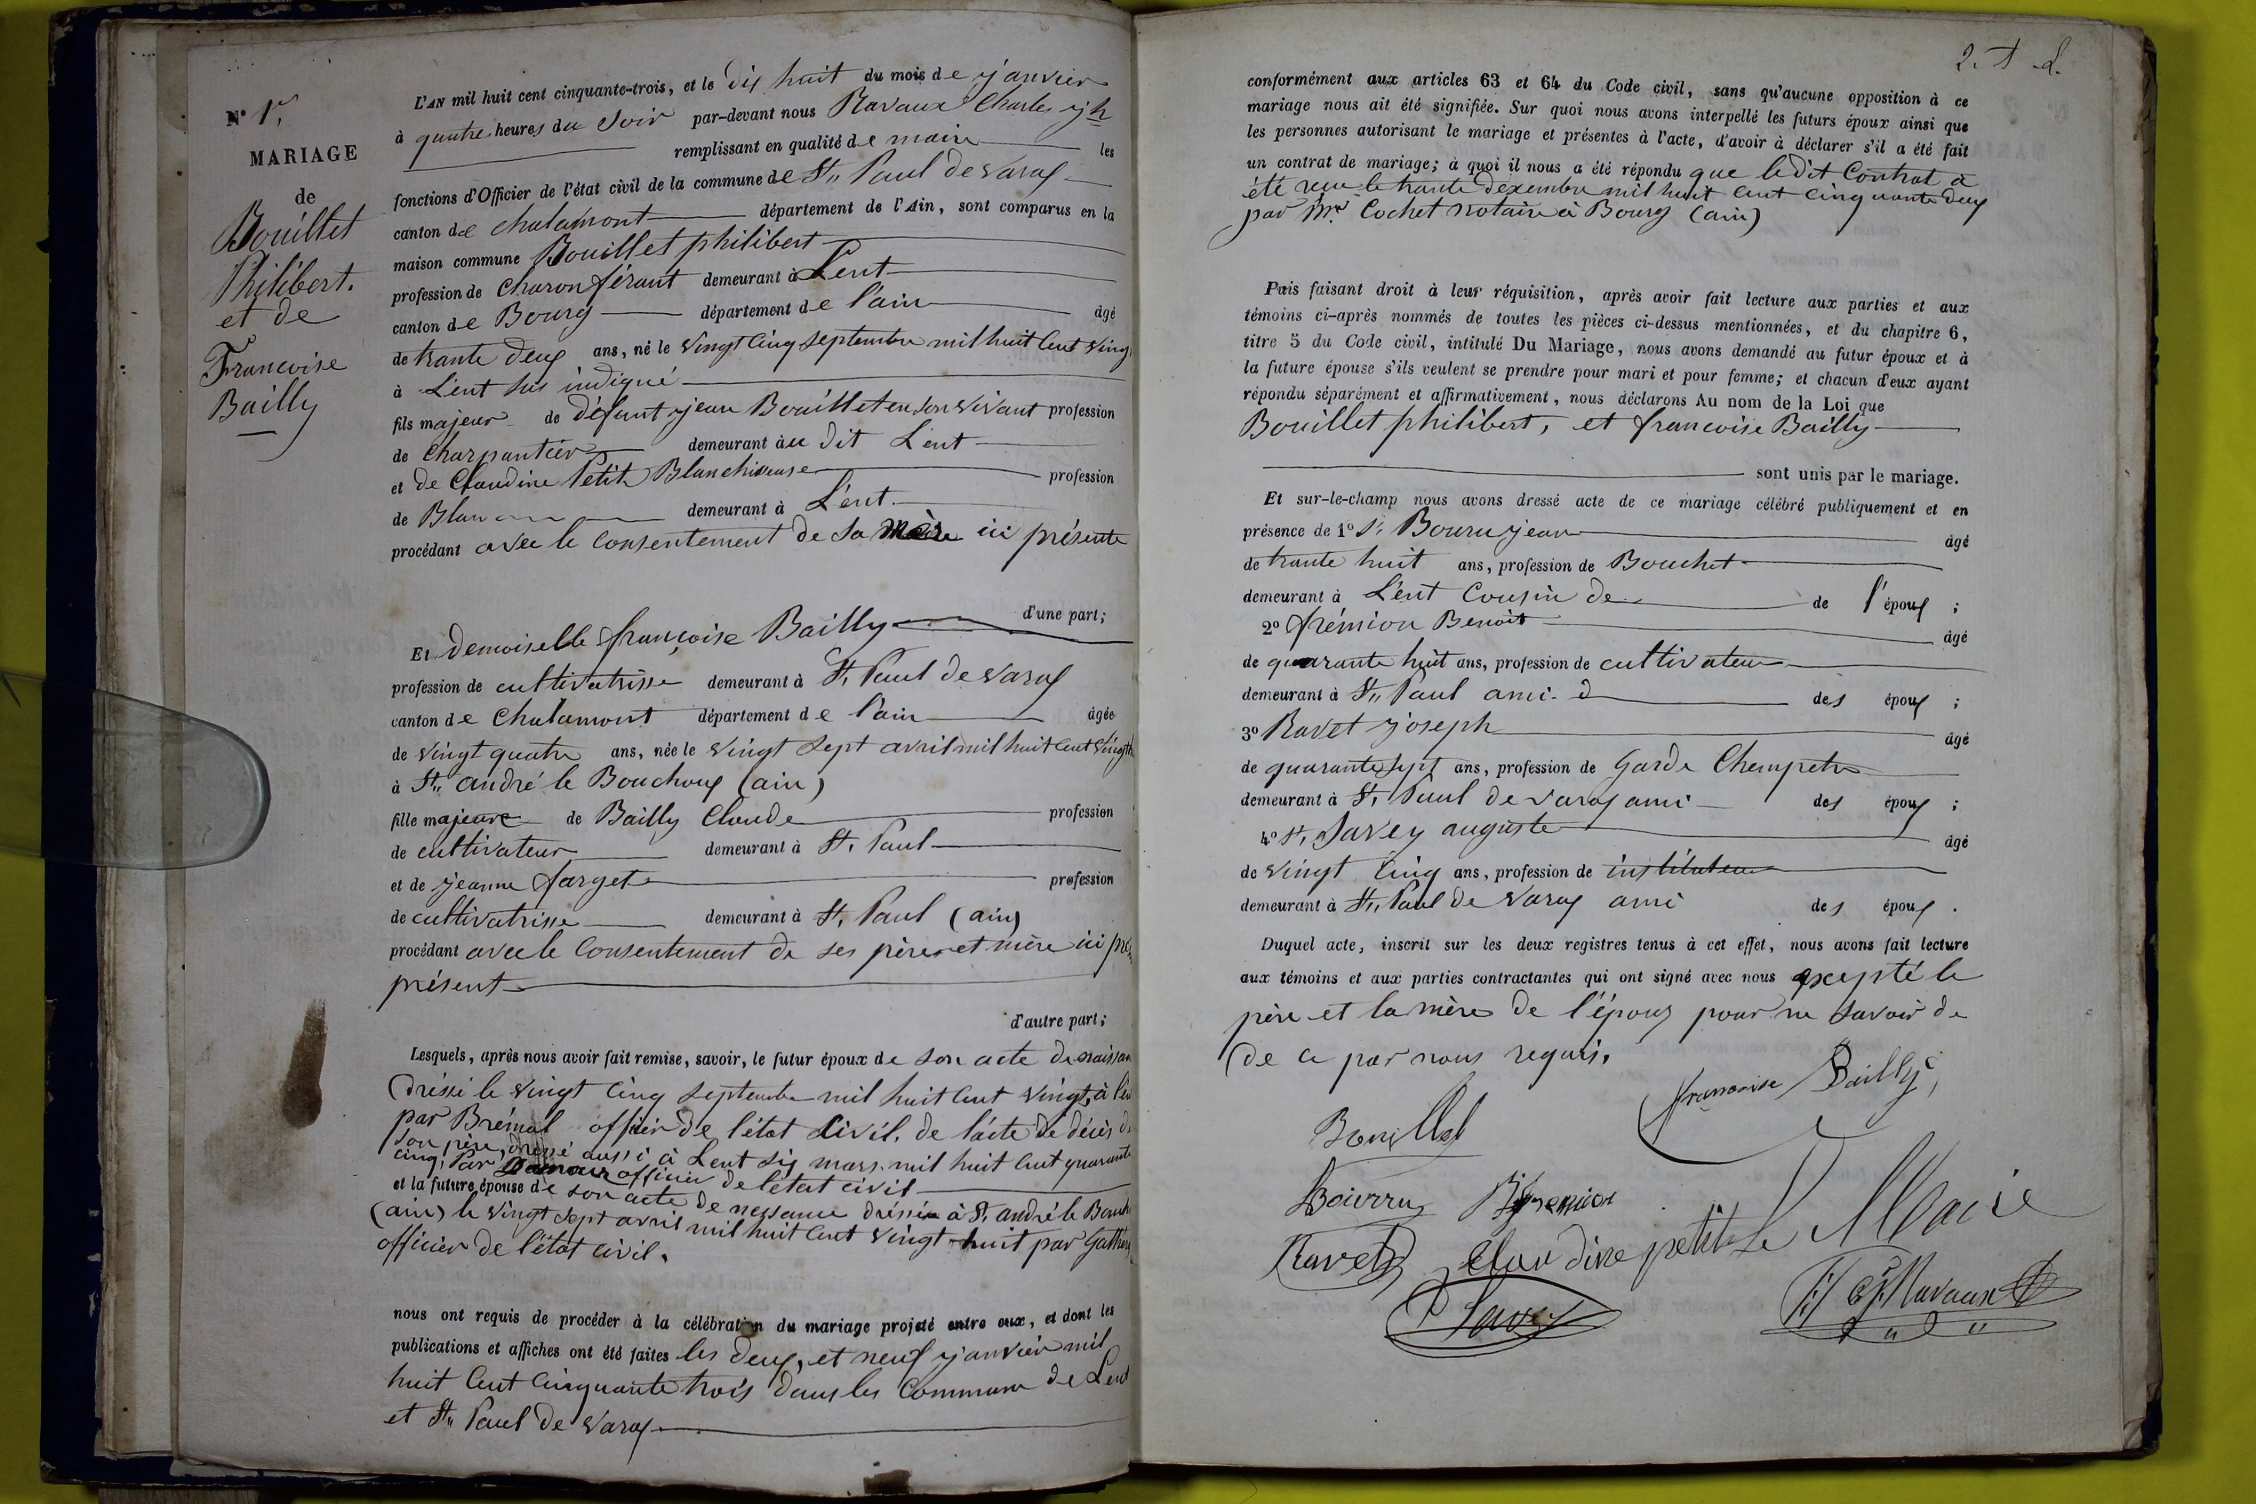 N° 1er
MARIAGE
de
Bouillet
Philibert.
et de
Francoise
Bailly
L'AN mil huit cent cinquante-trois, et le dix huit du mois de janvier
à quatre heures du Soir par-devant nous Ravaux Charles jh
remplissant en qualité de maire les
fonctions d'Officier de l'état civil de la commune de St Paul de Varax
canton de chalamont département de l'Ain, sont comparus en la
maison commune Bouillet philibert
profession de charon férant demeurant à Lent
canton de Bourg département de l'ain âgé
de trante deux ans, né le vingt cinq septembre mil huit cent ving
à Lent sus indiqué
fils majeur de défunt jean Bouillet en son vivant profession
de charpantier demeurant au dit Lent
et de Claudine Petit Blanchisseuse profession
de Blan demeurant à Lent
procédant avec le consentement de sa mère ici présente
d'une part;
Et demoiselle françoise Bailly
profession de cultivatrisse demeurant à St Paul de varax
canton de Chalamont département de l'ain âgée
de vingt quatre ans, née le vingt sept avril mil huit cent vingth
à St andré le Bouchoux (ain)
fille majeure de Bailly Claude profession
de cultivateur demeurant à St Paul
et de jeanne farget profession
de cultivatrisse demeurant à St Paul (ain)
procédant avec le consentement de ses père et mère ici pré
présent
d'autre part;
Lesquels, après nous avoir fait remise, savoir, le futur époux de son acte de naissan
dréssé le vingt cinq septembre mil huit cent vingt, à Len
par Brémal officier de l'état civil, de l'acte de décès de
son père, dressé aussi à Lent six mars mil huit cent quarante
cinq, par officier de l'état civil
et la future épouse de son acte de nessance dréssée à St andré le Bouch
(ain) le vingt sept avril mil huit cent vingt-huit par
officier de l'état civil.
nous ont requis de procéder à la célébration du mariage projeté entre eux, et dont les
publications et affiches ont été faites les deux, et neuf janvier mil
huit cent cinquante trois dans les commune de Lent
et St Paul de varax
2. d.
conformément aux articles 63 et 64 du Code civil, sans qu'aucune opposition à ce
mariage nous ait été signifiée. Sur quoi nous avons interpellé les futurs époux ainsi que
les personnes autorisant le mariage et présentes à l'acte, d'avoir à déclarer s'il a été fait
un contrat de mariage; à quoi il nous a été répondu que ledit Contrat a
été reçu le trante dexembre mil huit cent cinquante deux
par Mr Cochet notaire à Bourg (ain)
Puis faisant droit à leur réquisition, après avoir fait lecture aux parties et aux
témoins ci-après nommés de toutes les pièces ci-dessus mentionnées, et du chapitre 6,
titre 5 du Code civil, intitulé Du Mariage, nous avons demandé au futur époux et à
la future épouse s'ils veulent se prendre pour mari et pour femme; et chacun d'eux ayant
répondu séparément et affirmativement, nous déclarons Au nom de la Loi que
Bouillet philibert, et francoise Bailly
sont unis par le mariage.
Et sur-le-champ nous avons dressé acte de ce mariage célébré publiquement et en
présence de 1° Sr Bourru jean âgé
de trante huit ans, profession de Bouchet
demeurant à Lent Cousin de de l'époux ;
2° frémion Benoit âgé
de quarante huit ans, profession de cultivateur
demeurant à St Paul ami d des époux ;
3° Ravet joseph âgé
de quarante sept ans, profession de Garde Chempetre
demeurant à St Paul de varax ami des époux ;
4° St Savey auguste âgé
de vingt cinq ans, profession de instituteur
demeurant à St Paul de varax ami des époux .
Duquel acte, inscrit sur les deux registres tenus à cet effet, nous avons fait lecture
aux témoins et aux parties contractantes qui ont signé avec nous excepté le
père et la mère de l'épouz pour ne savoir de
de ce par nous requis.
Bouillet
francoise Bailly
Bourru Bfremion
Le Maire
Ravet Claudine petit
Savey
Ch Ravaux